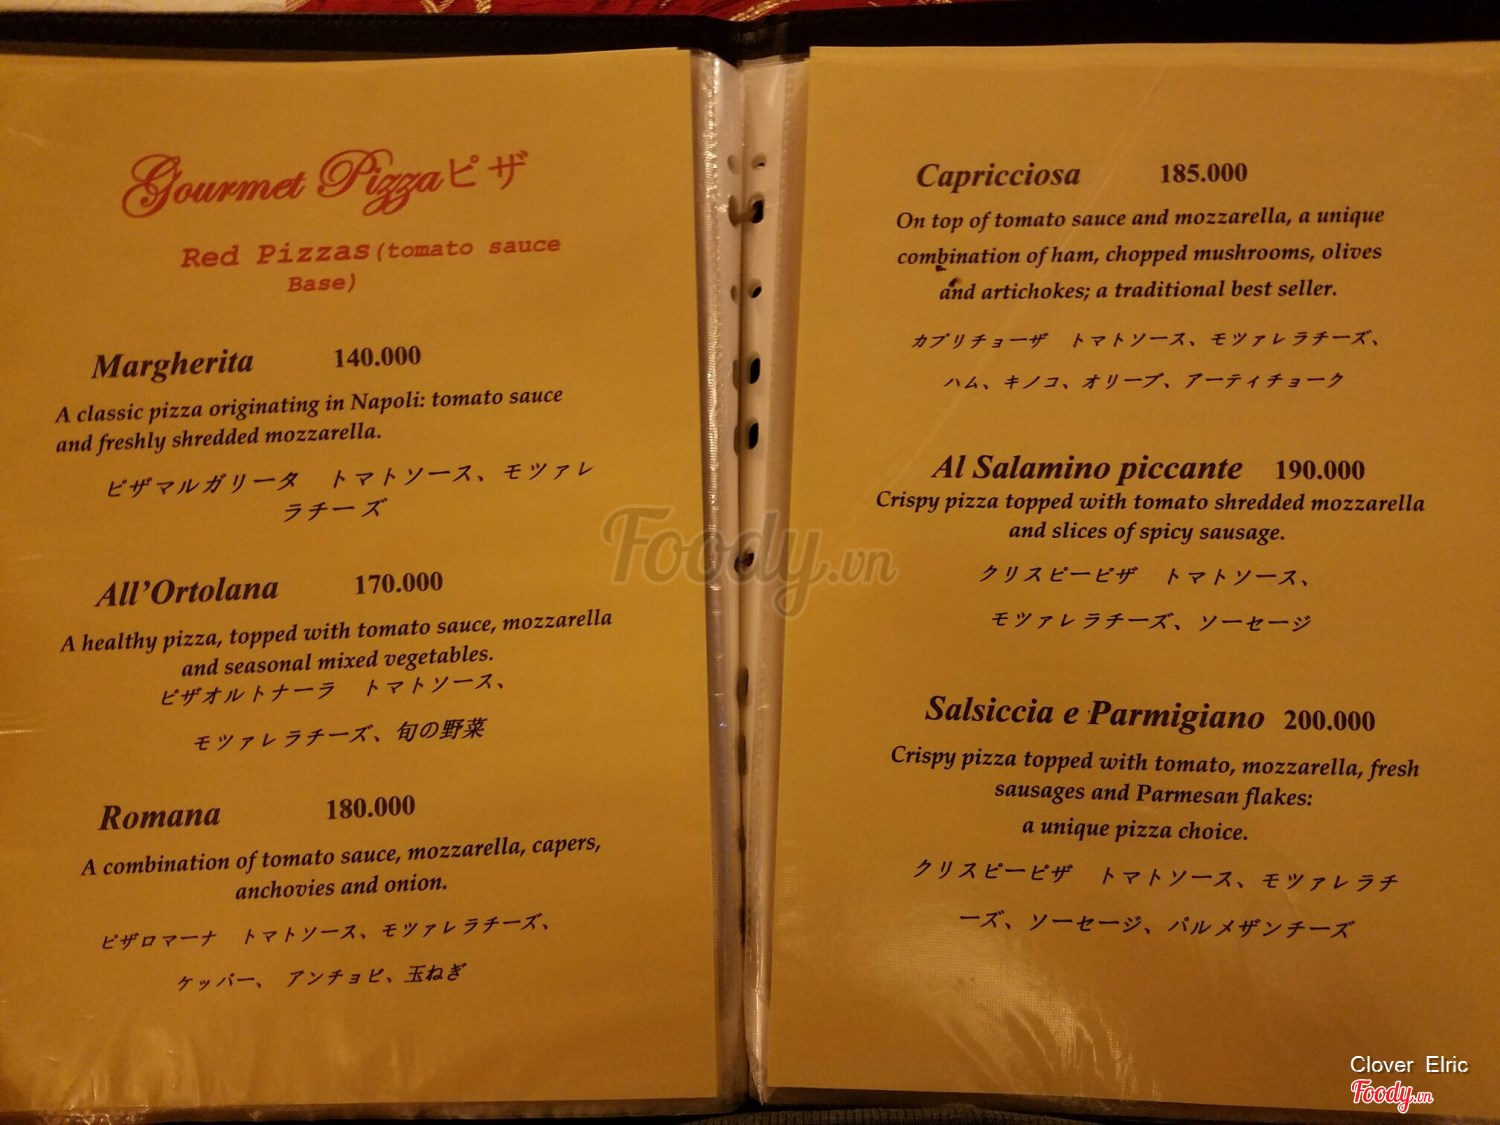 Gourmet Pizzaピザ
Red Pizzas(tomato sauce
Base)
Margherita 140.000
A classic pizza originating in Napoli: tomato sauce
and freshly shredded mozzarella.
ピザマルガリータ　トマトソース、モツァレ
ラチーズ
All'Ortolana 170.000
A healthy pizza, topped with tomato sauce, mozzarella
and seasonal mixed vegetables.
ピザオルトナーラ　トマトソース、
モツァレラチーズ、旬の野菜
Romana 180.000
A combination of tomato sauce, mozzarella, capers,
anchovies and onion.
ピザロマーナ　トマトソース、モツァレラチーズ、
ケッパー、 アンチョビ、玉ねぎ
Capricciosa 185.000
On top of tomato sauce and mozzarella, a unique
combination of ham, chopped mushrooms, olives
and artichokes; a traditional best seller.
カプリチョーザ　トマトソース、モツァレラチーズ、
ハム、キノコ、オリーブ、アーティチョーク
Al Salamino piccante 190.000
Crispy pizza topped with tomato shredded mozzarella
and slices of spicy sausage.
クリスピーピザ　トマトソース、
モツァレラチーズ、ソーセージ
Salsiccia e Parmigiano 200.000
Crispy pizza topped with tomato, mozzarella, fresh
sausages and Parmesan flakes:
a unique pizza choice.
クリスピーピザ　トマトソース、モツァレラチ
ーズ、ソーセージ、パルメザンチーズ
Foody.vn
Clover Elric
Foody.vn